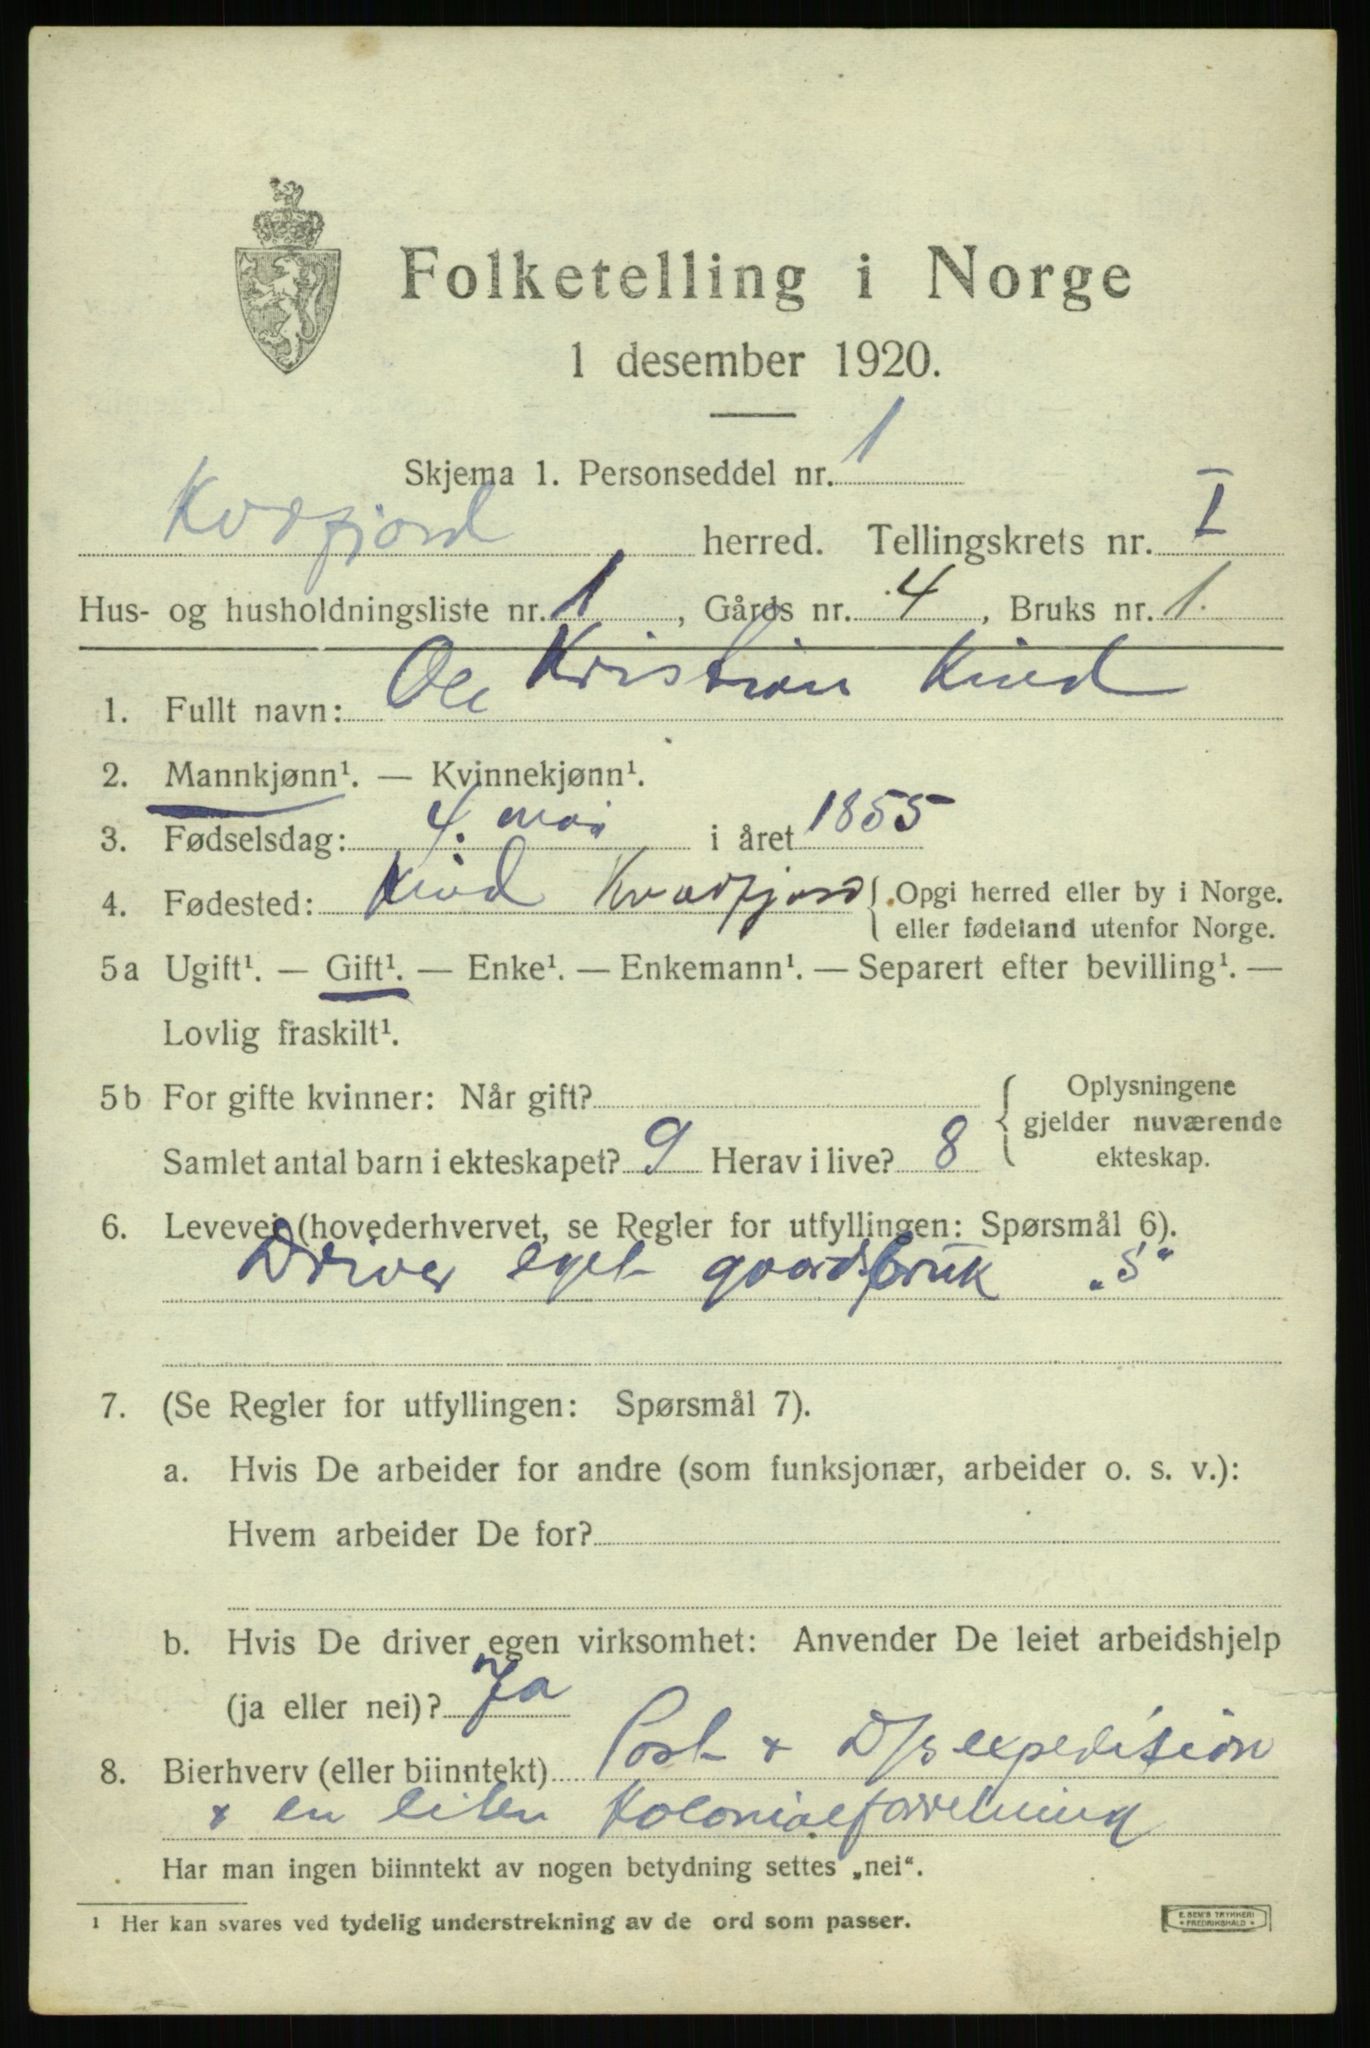 Folketelling i Norge
1 desember 1920.
Skjema 1. Personseddel nr. 1
Kvæfjord herred. Tellingskrets nr. I
Hus- og husholdningsliste nr. 1, Gårds nr. 4, Bruks nr. 1.
1. Fullt navn: Ole Kristian Kind
2. Mannkjønn¹. — Kvinnekjønn¹.
3. Fødselsdag: 4. mai i året 1855
4. Fødested: Kind Kvæfjord { Opgi herred eller by i Norge.
eller fødeland utenfor Norge.
5a Ugift¹. — Gift¹. — Enke¹. — Enkemann¹. — Separert efter bevilling¹. —
Lovlig fraskilt¹.
5b For gifte kvinner: Når gift? { Oplysningene
gjelder nuværende
Samlet antal barn i ekteskapet? 9 Herav i live? 8 ekteskap.
6. Levevei (hovederhvervet, se Regler for utfyllingen: Spørsmål 6).
Driver eget gaardsbruk „S“
7. (Se Regler for utfyllingen: Spørsmål 7).
a. Hvis De arbeider for andre (som funksjonær, arbeider o. s. v.):
Hvem arbeider De for?
b. Hvis De driver egen virksomhet: Anvender De leiet arbeidshjelp
(ja eller nei)? Ja
8. Bierhverv (eller biinntekt) Post & D/s expedition
& en liten Kolonialforretning
Har man ingen biinntekt av nogen betydning settes „nei“.
¹ Her kan svares ved tydelig understrekning av de ord som passer.
E. SEM'S TRYKKERI
FREDRIKSHALD